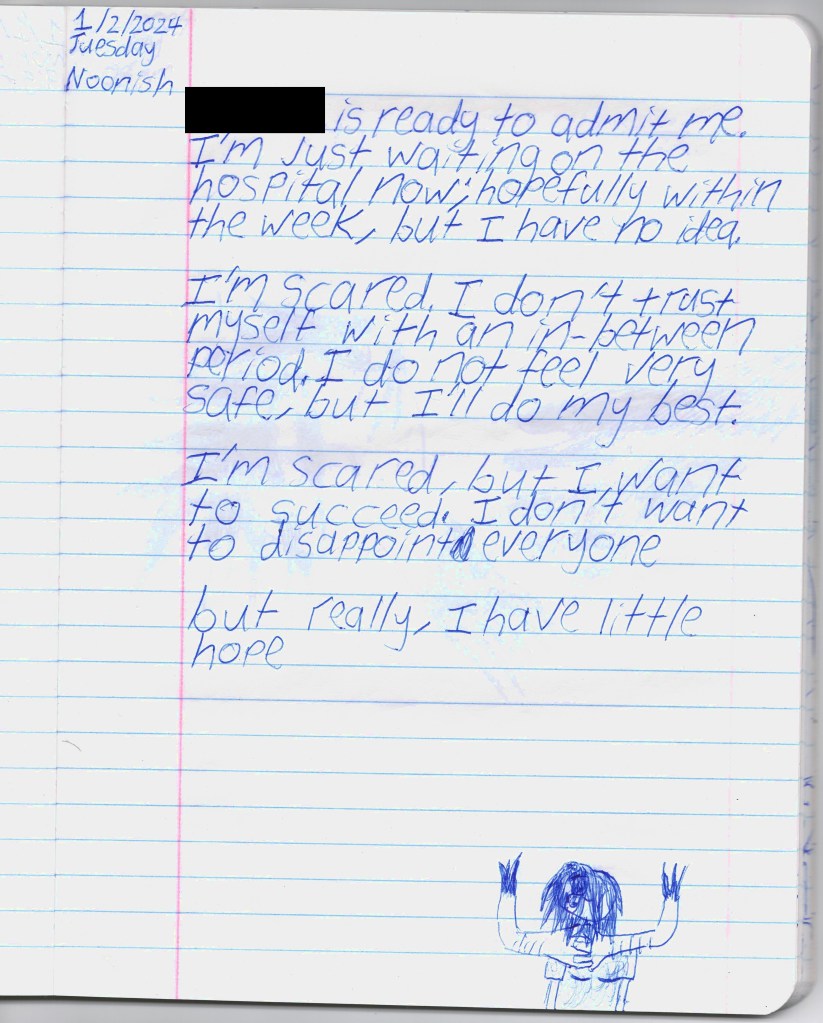 1/2/2024
Tuesday
Noonish
is ready to admit me.
I'm Just waiting on the
hospital now; hopefully within
the week, but I have no idea.
I'm scared. I don't trust
myself with an in-between
period. I do not feel very
safe, but I'll do my best.
I'm scared, but I want
to succeed. I don't want
to disappoint everyone
but really, I have little
hope